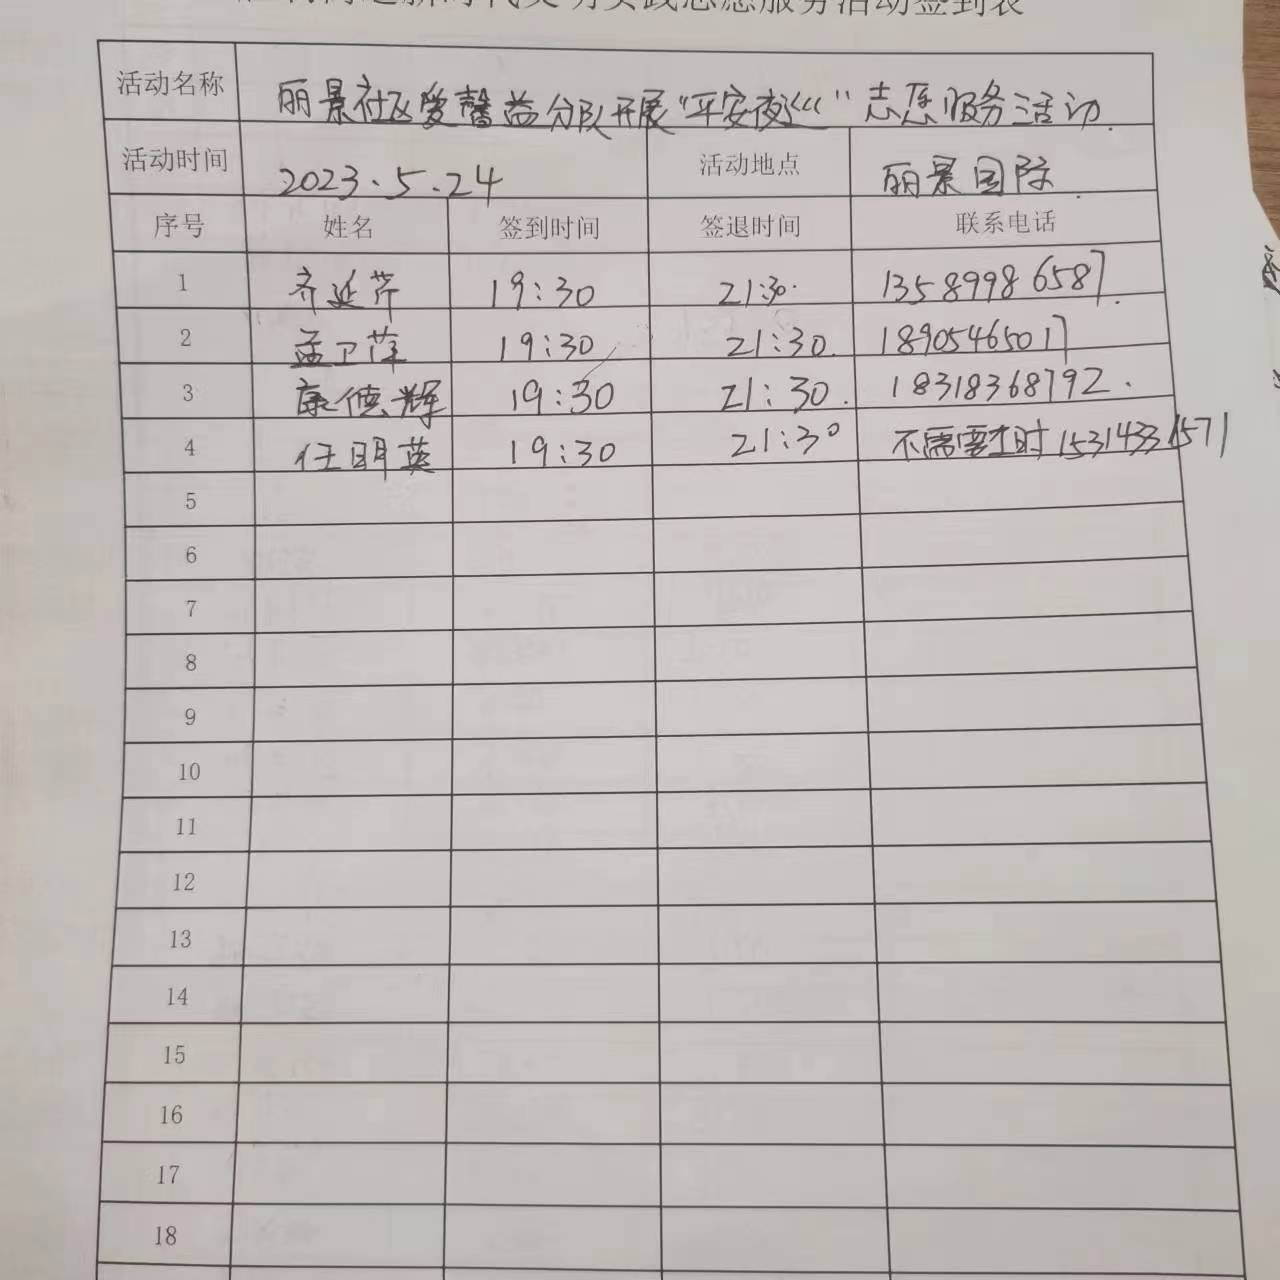 新时代文明实践志愿服务活动签到表
活动名称 丽景社区爱馨益分队开展“平安夜巡”志愿服务活动.
活动时间 2023.5.24 活动地点 丽景国际.
序号 姓名 签到时间 签退时间 联系电话
1 齐延芹 19:30 21:30. 13589986587.
2 孟卫萍 19:30 21:30. 18905465017
3 康德辉 19:30 21:30. 18318368792.
4 任明英 19:30 21:30 不需要工时 15314331571
5
6
7
8
9
10
11
12
13
14
15
16
17
18